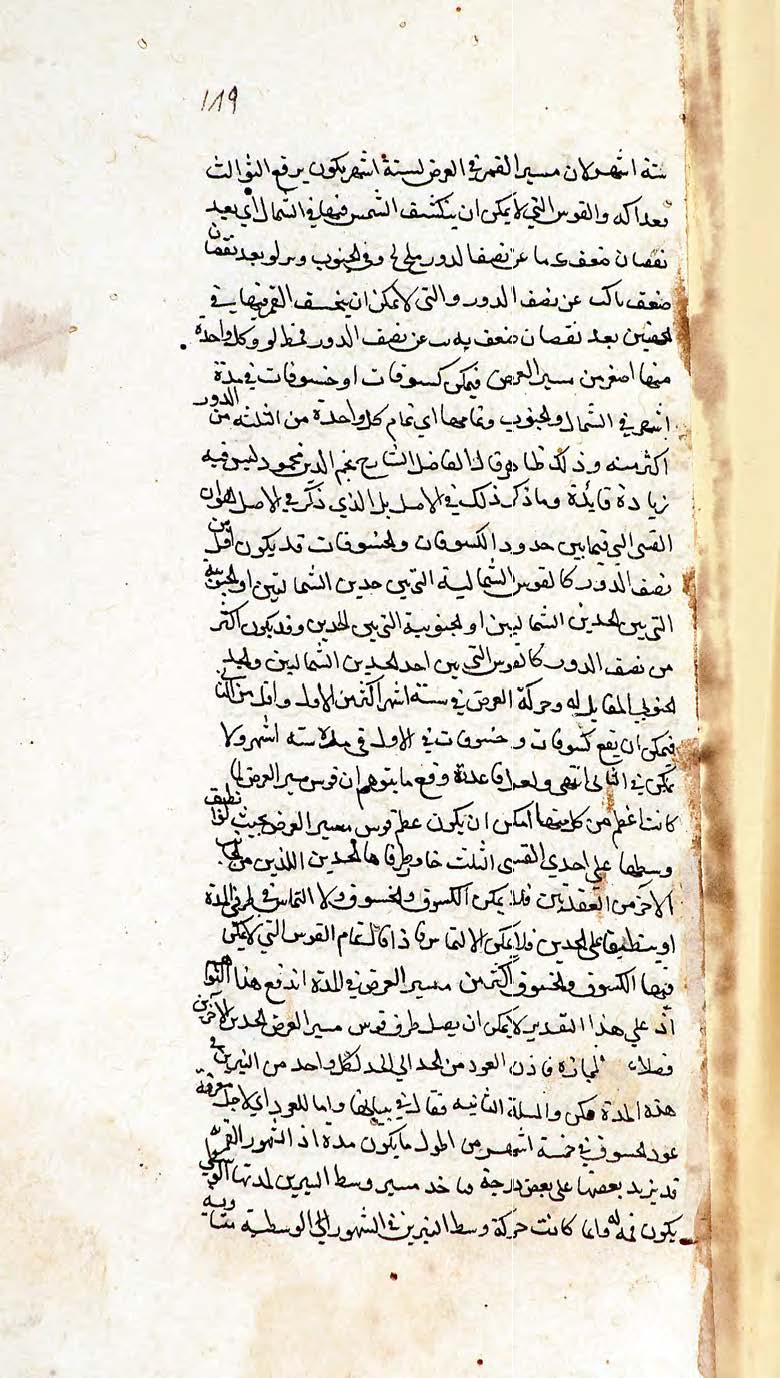 ١٨٩
ستة اشهر لان مسير القمر في العرض لستة اشهر يكون برفع الثوالث
والقوس التي لا يمكن ان ينكشف الشمس فيها في الشمال اي بعد
نقصان ضعف ما عن نصف الدور وفي الجنوب بعد نقصان
ضعف عن نصف الدور والتي لا يمكن ان ينخسف القمر فيها في
بعد نقصان ضعف عن نصف الدور وكل واحدة
منها اصغر من مسير العرض فيمكن كسوفات او خسوفات في مدة
اشهر في الشمال والجنوب وتمامها اي تمام كل واحدة من الثلثة من الدور
اكثر منه وذلك ظاهر قال الفاضل الشارح نجم الدين محمود ليس فيه
زيادة فايدة وما ذكر ذلك في الاصل بل الذي ذكر في الاصل هو ان
القسي التي فيما بين حدود الكسوفات والخسوفات قد يكون اقل من
نصف الدور كالقوس الشمالية التي بين حدين الشماليتين او الجنوبية
التي بين الحدين الشماليين او الجنوبية التي بين الحدين وقد يكون اكثر
من نصف الدور كالقوس التي بين احد الحدين الشماليين والحد
الجنوبي المقابل له وحركة العرض في ستة اشهر اكثر من الاول واقل من الثاني
فيمكن ان يقع كسوفات وخسوفات في الاول في مدة ستة اشهر ولا
يمكن في الثاني انتهى ولعل قاعدة وقع ما يتوهم ان قوس مسير العرض لما
كانت اعظم من كل منها امكن ان يكون عظم قوس مسير العرض بحيث لو انطبق
وسطها علي احدي القسي الثلث خاو طرفاها الحدين اللذين من الجانب
الآخر من العقدتين فلا يمكن الكسوف والخسوف ولا التماس في طرفي المدة
او ينطبقا علي الحدين فلا يمكن الا التماس فاذا قال تمام القوس التي لا يمكن
فيها الكسوف والخسوف اكثر من مسير العرض في المدة اندفع هذا التوهم
اذ علي هذا التقدير لا يمكن ان يصل طرف قوس مسير العرض الحدين الآخرين
فضلا المجازة فاذن العود من الحد الي الحد لكل واحد من النيرين في
هذه المدة ممكن والمسئلة الثانية فقال في بيانها واما للعود اي لاجل معرفة
عود الخسوف في خمسة اشهر من اطول ما يكون مدة اذ الشهور القمرية
قد يزيد بعضها علي بعض درجة ماخذ مسير وسط النيرين لمدتها الوسطي
يكون وانما كانت حركة وسط النيرين في الشهور الوسطية متساوية